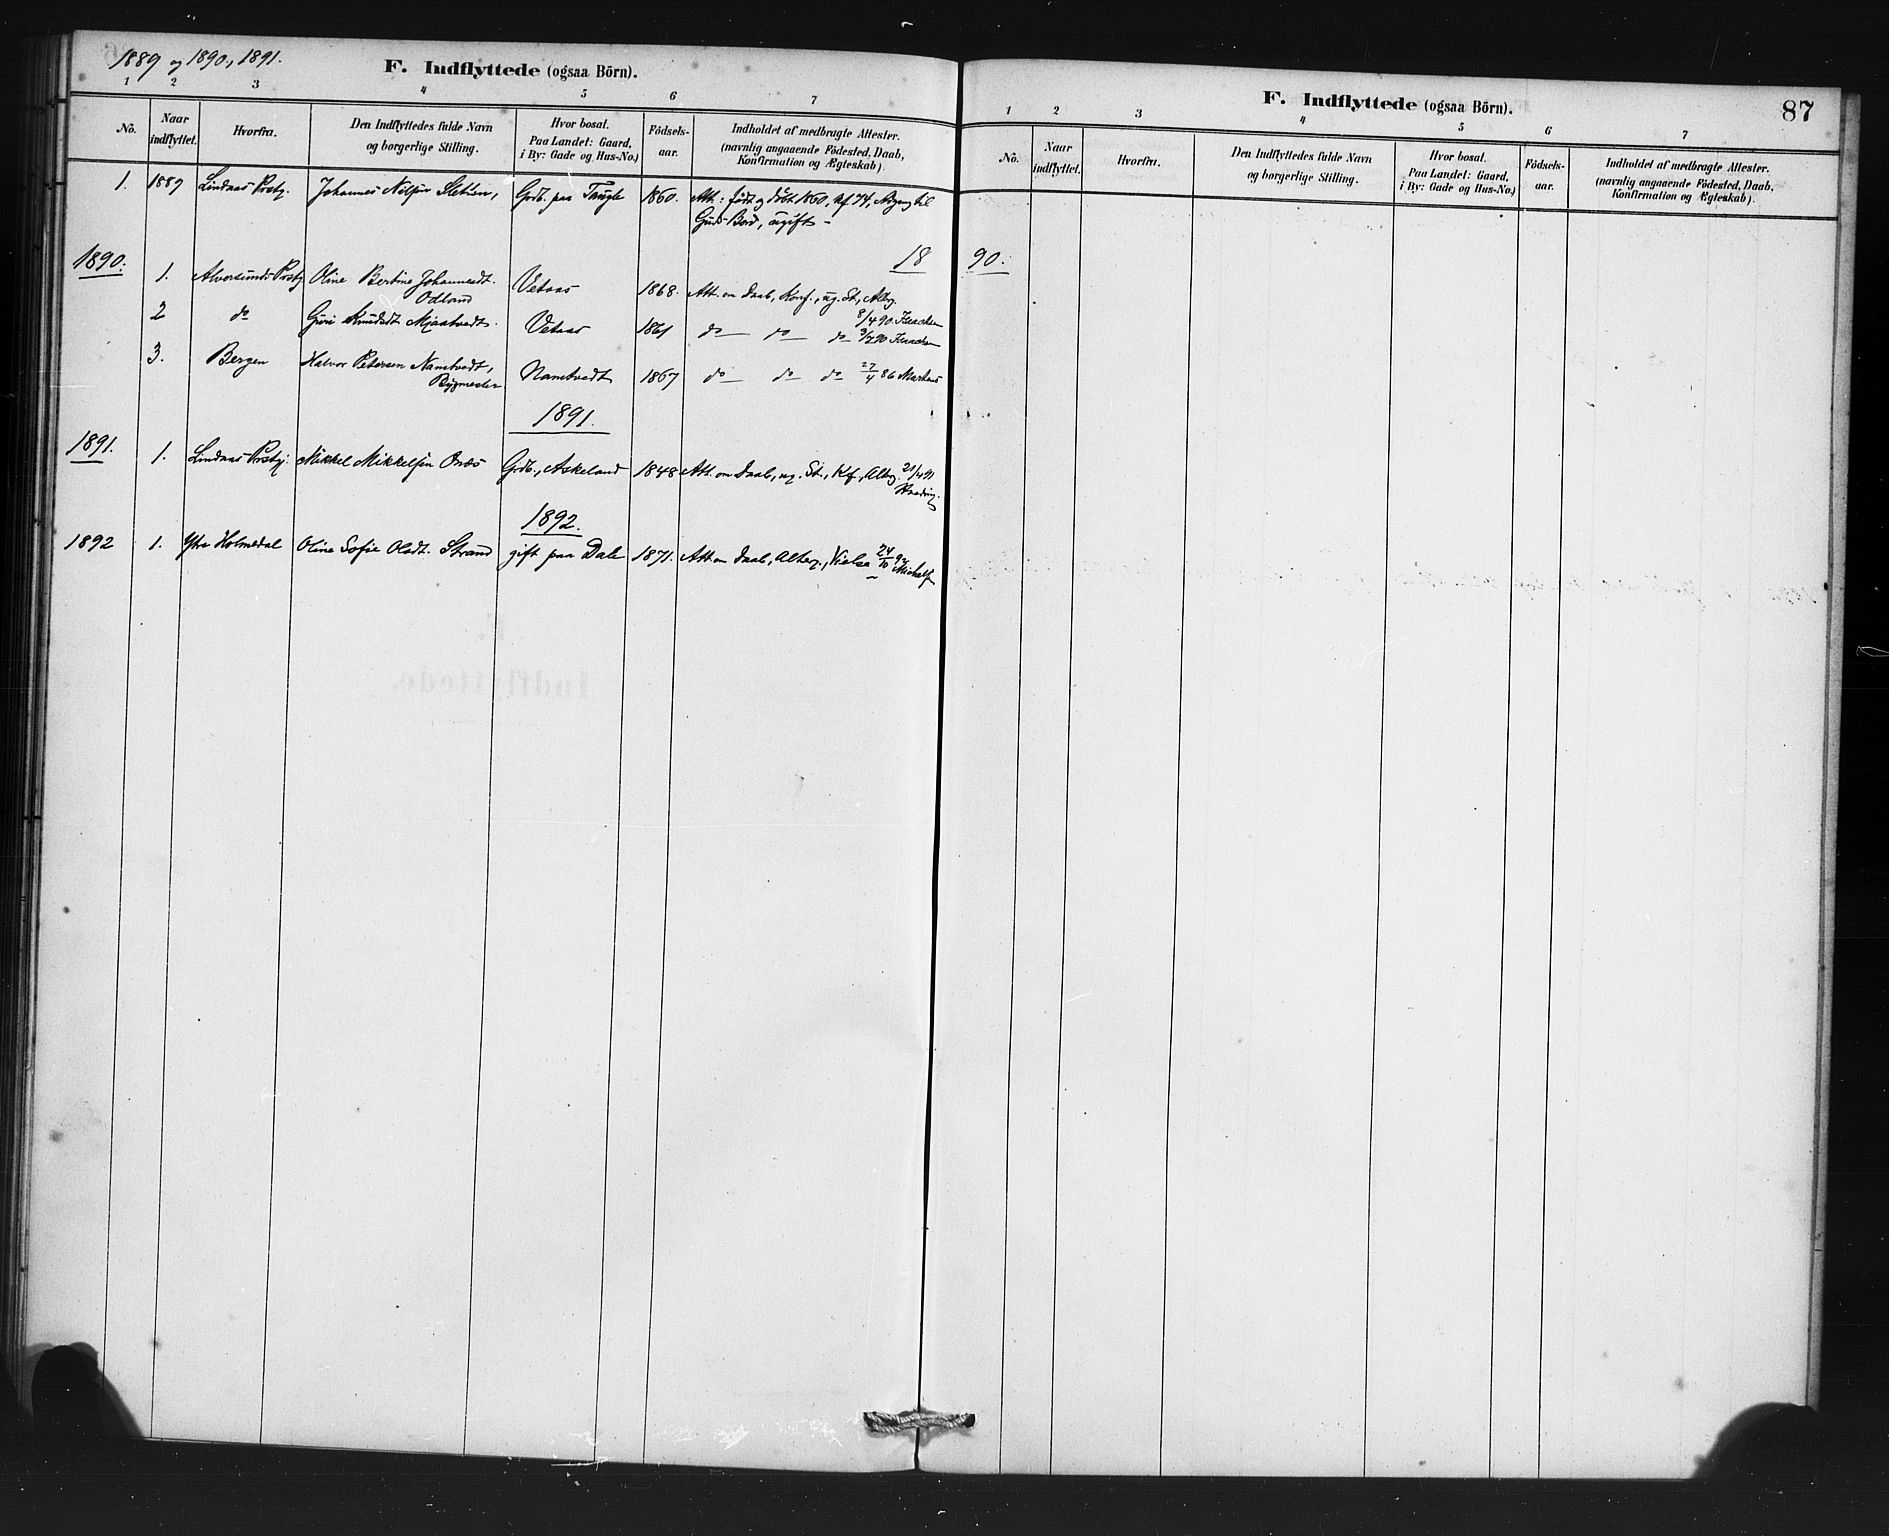 1889 og 1890, 1891.
F. Indflyttede (ogsaa Börn).
1 2 3 4 5 6 7
No. Naar indflyttet. Hvorfra. Den Indflyttedes fulde Navn og borgerlige Stilling. Hvor bosat. Paa Landet: Gaard, i By: Gade og Hus-No.) Födsels-aar. Indholdet af medbragte Attester. (navnlig angaaende Födested, Daab, Konfirmation og Ægteskab).
1. 1889 Lindaas Prstgj. Johannes Nilsen Sletten, Grdb. paa Tangle 1860. Att: født og døbt 1860, kf 74, Adgang til
Guds Bord, ugift –
1890. 18
1. Alversunds Prstgj. Oline Bertine Johannesdt. Vetaas 1868. Att. om Daab, Konf., ug. St., Altg.
Odland 8/4 90. Isachsen
2 do Guri Knudsdt Mjaatvedt. Vetaas 1861 do do do 3/7 90 Isachsen
3. Bergen Halvor Petersen Namtvedt, Namtvedt 1867 do do do 27/4 86 Martens
Bygmester
1891.
1891. 1. Lindaas Prstgj. Mikkel Mikkelsen Grdb., Askeland 1848 Att. om Daab, ug. St., Kf., Altrg. 21/4 91
1892.
1892 1. Ytre Holmedal Oline Sofie Olsdt. Strand gift paa Dale 1871. Att. om Daab, Alterg., Vielse 24/10 92
Indflyttede.
F. Indflyttede (ogsaa Börn).
87
1 2 3 4 5 6 7
No. Naar indflyttet. Hvorfra. Den Indflyttedes fulde Navn og borgerlige Stilling. Hvor bosat. Paa Landet: Gaard, i By: Gade og Hus-No.) Födsels-aar. Indholdet af medbragte Attester. (navnlig angaaende Födested, Daab, Konfirmation og Ægteskab).
90.